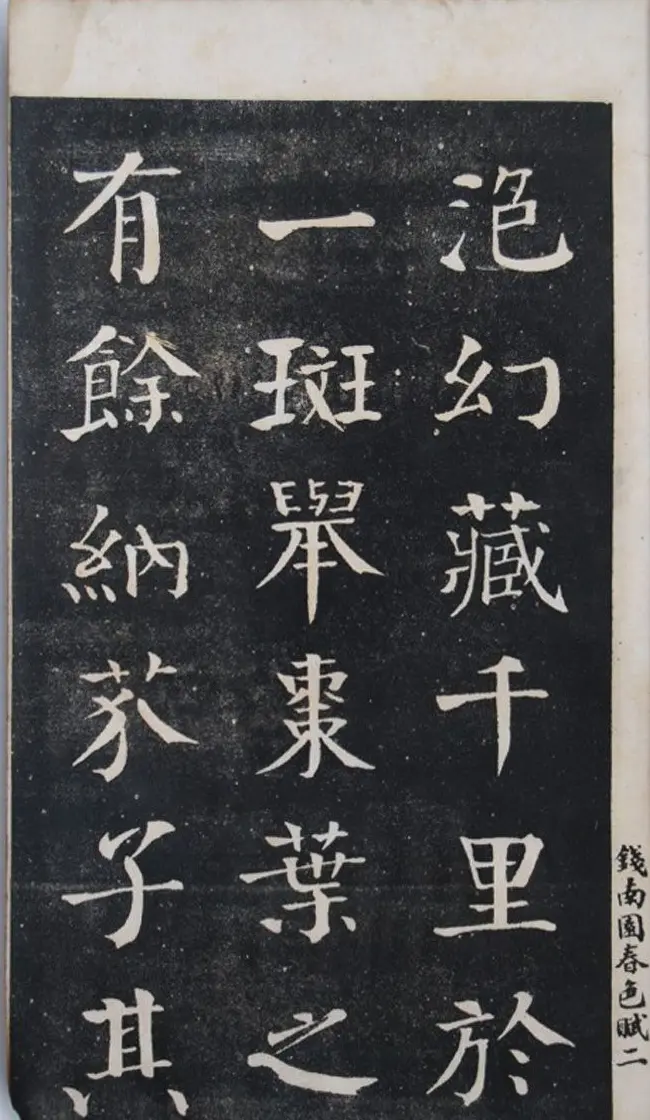 錢南園春色賦二
泡幻藏千里於
一斑舉棗葉之
有餘納芥子其